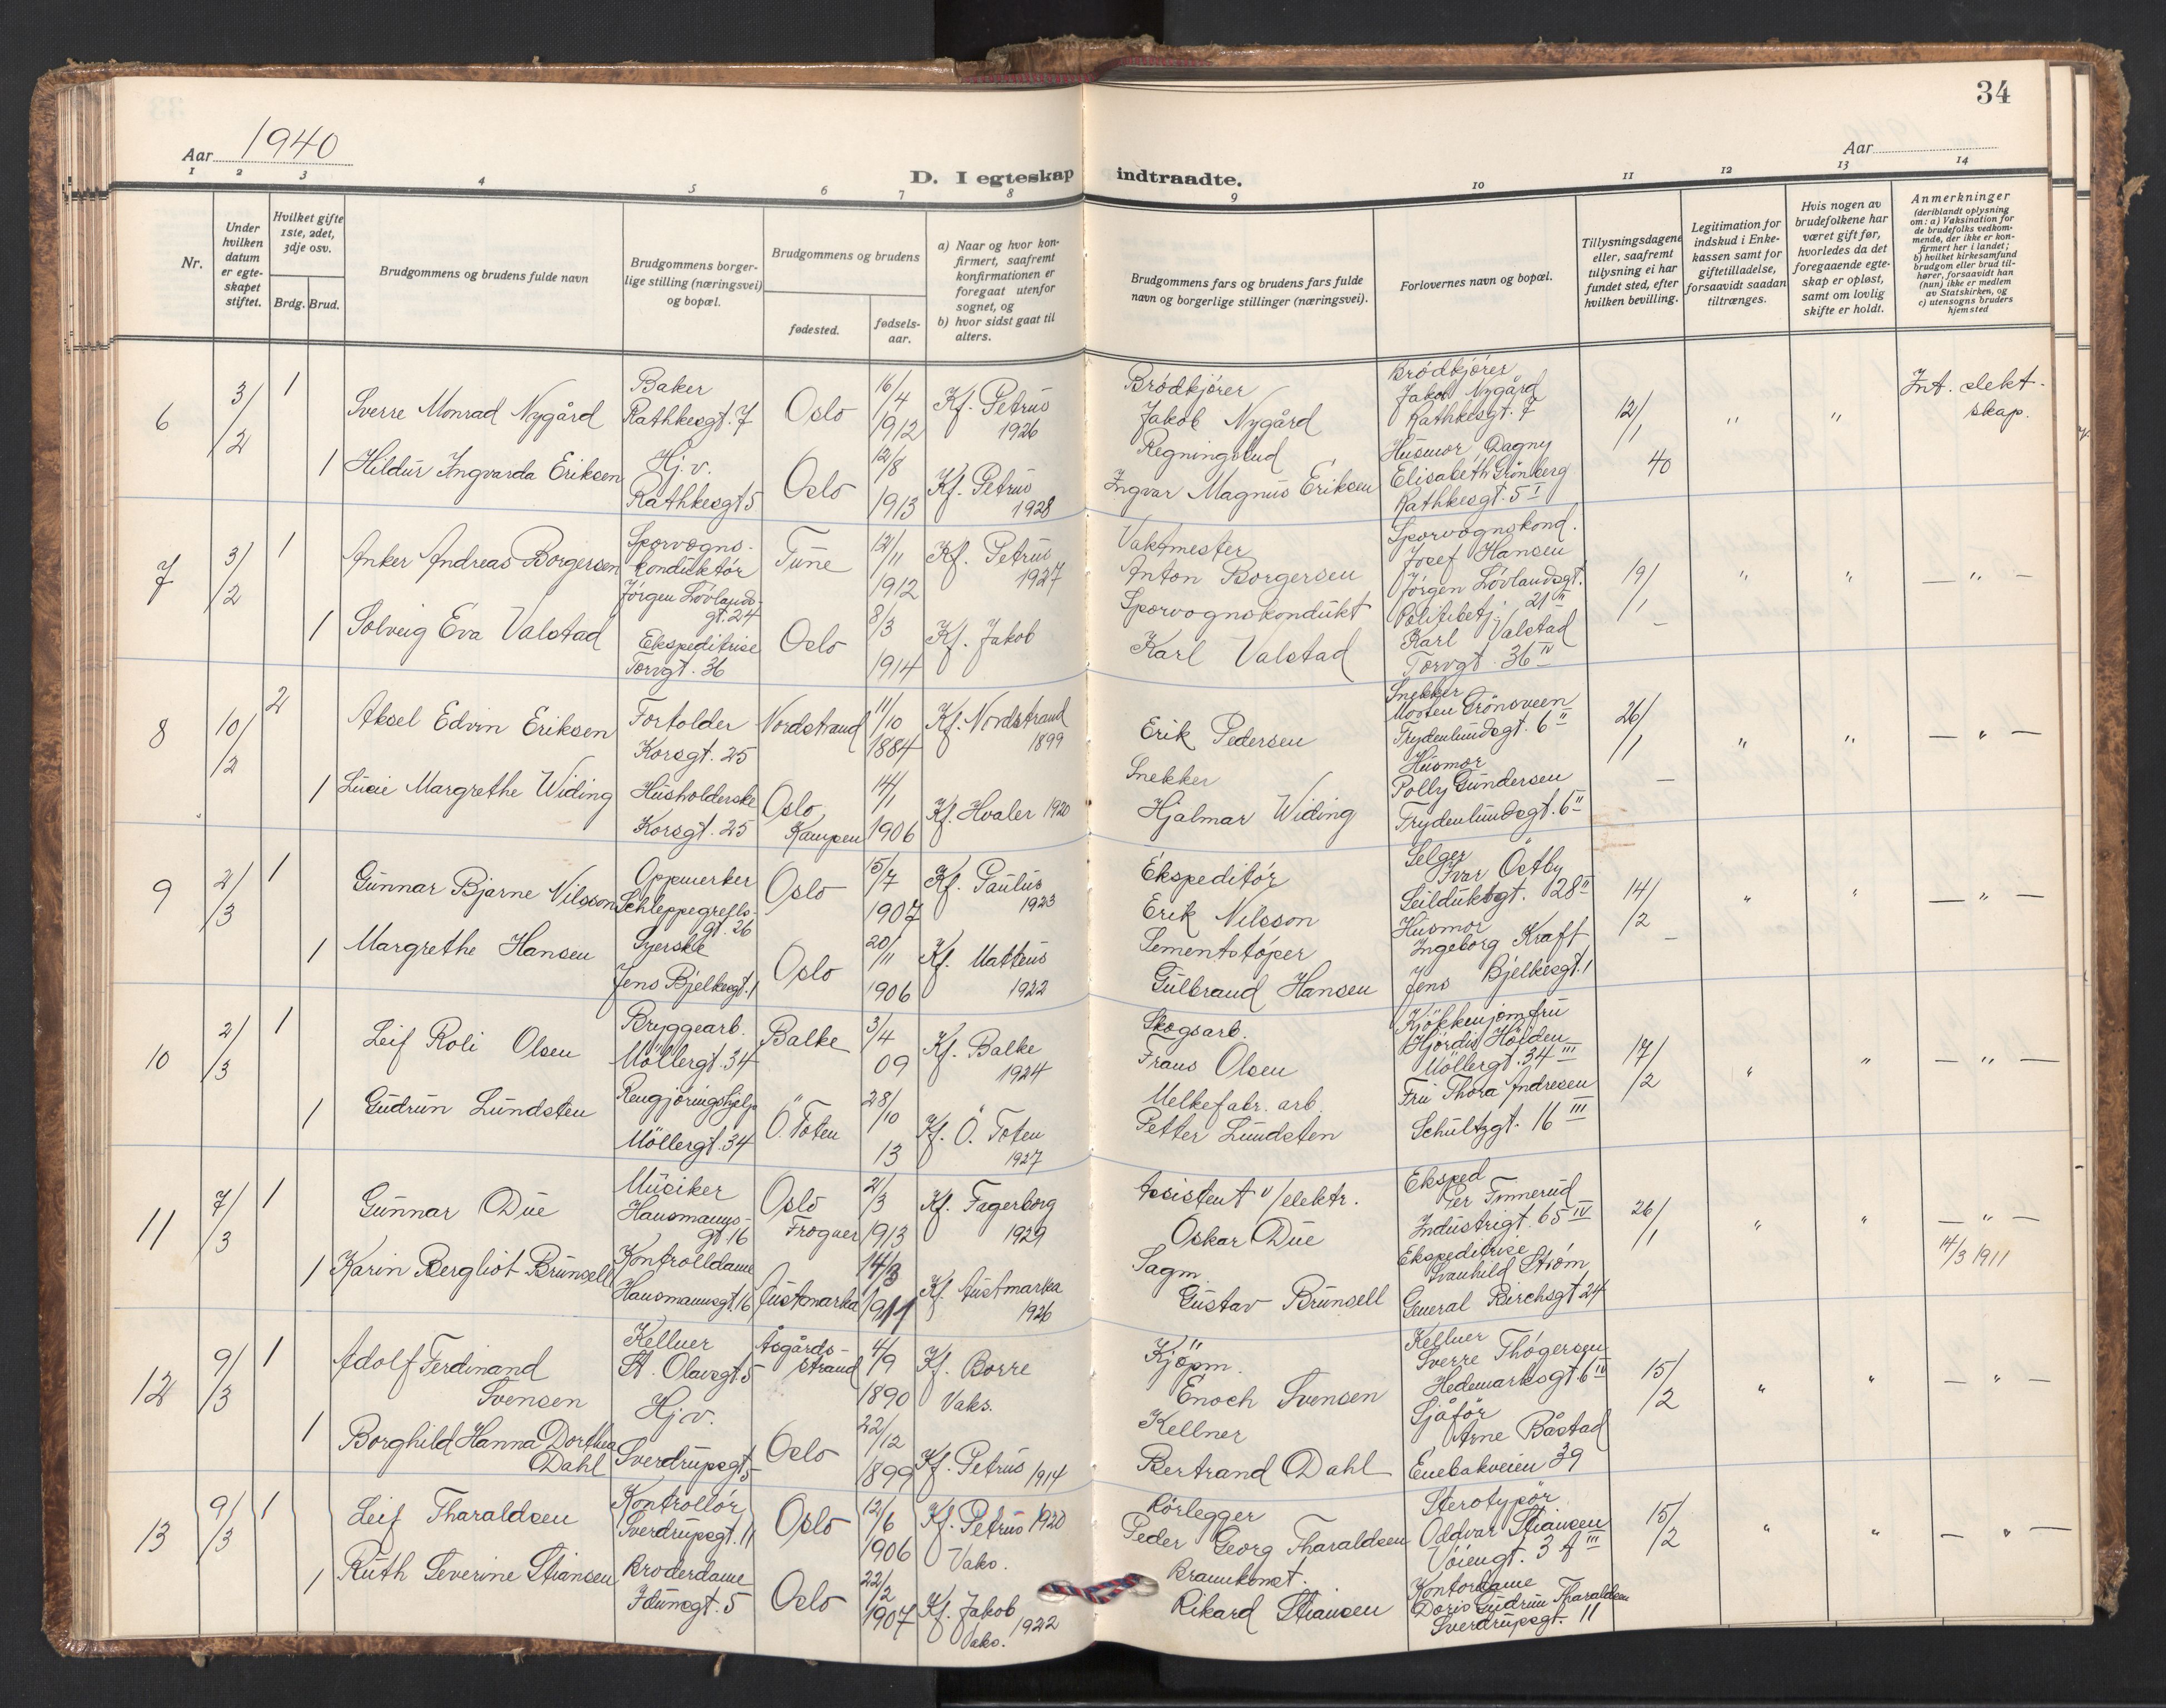 34
Aar 1940
Aar
D. I egteskap indtraadte.
1 2 3 4 5 6 7 8 9 10 11 12 13 14
Nr.
Under hvilken datum er egteskapet stiftet.
Hvilket gifte 1ste, 2det, 3dje osv.
Brdg. Brud.
Brudgommens og brudens fulde navn
Brudgommens borgerlige stilling (næringsvei) og bopæl.
Brudgommens og brudens
fødested.
fødselsaar.
a) Naar og hvor konfirmert, saafremt konfirmationen er foregaat utenfor sognet, og
b) hvor sidst gaat til alters.
Brudgommens fars og brudens fars fulde navn og borgerlige stillinger (næringsvei).
Forlovernes navn og bopæl.
Tillysningsdagene eller, saafremt tillysning ei har fundet sted, efter hvilken bevilling.
Legitimation for indskud i Enkekassen samt for giftetilladelse, forsaavidt saadan tiltrænges.
Hvis nogen av brudefolkene har været gift før, hvorledes da det foregaaende egteskap er opløst, samt om lovlig skifte er holdt.
Anmerkninger
(deriblandt oplysning om: a) Vaksination for de brudefolks vedkommende, der ikke er konfirmert her i landet; b) hvilket kirkesamfund brudgom eller brud tilhører, forsaavidt han (hun) ikke er medlem av Statskirken, og c) utensogns bruders hjemsted
6 3/2 1 Sverre Monrad Nygård Baker Rathkesgt. 7 Oslo 16/4 1912 Kf. Petrus 1926 Brödkjører Jakob Nygård Brödkjører Jakob Nygård Rathkesgt. 7 12/1 40 " " Int. slektskap.
1 Hildur Ingvarda Eriksen Hj.v. Rathkesgt 5 Oslo 12/8 1913 Kf. Petrus 1928 Regningsbud Ingvar Magnus Eriksen Husmor Dagny Elisabeth Grönberg Rathkesgt. 5 I
7 3/2 1 Anker Andreas Borgersen Sporvognskonduktör Jörgen Lövlandsgt. 24 Tune 12/11 1912 Kf. Petrus 1927 Vaktmester Anton Borgersen Sporvognskond. Josef Hansen Jörgen Lövlandsgt. 21 II 19/1 – " " – " –
1 Solveig Eva Valstad Ekspeditrise Torvgt. 36 Oslo 8/3 1914 Kf. Jakob Sporvognskondukt Karl Valstad Politibetj. Karl Valstad Torvgt. 36 IV
8 10/2 2 Aksel Edvin Eriksen Fortolder Korsgt. 25 Nordstrand 11/10 1884 Kf. Nordstrand 1899 Erik Pedersen Snekker Morten Grönsveen Frydenlundsgt. 6 II 26/1 – " " – " –
1 Lucie Margrethe Widing Husholderske Korsgt. 25 Oslo Kampen 14/1 1906 Kf. Hvaler 1920 Snekker Hjalmar Widing Husmor Polly Gundersen Frydenlundsgt. 6 II
9 2/3 1 Gunnar Bjarne Nilsson Oppmerker Schleppegrellsgt. 26 Oslo 15/7 1907 Kf. Paulus 1923 Ekspeditör Erik Nilsson Selger Ivar Östby Seilduksgt. 28 II 14/2 – " " – " –
1 Margrethe Hansen Syerske Jens Bjelkesgt. 1 Oslo 20/11 1906 Kf. Matteus 1922 Sementstöper Gulbrand Hansen Husmor Ingeborg Kraft Jens Bjelkesgt. 1
10 2/3 1 Leif Roli Olsen Bryggearb. Möllergt. 34 Balke 3/4 09 Kf. Balke 1924 Skogsarb. Frans Olsen Kjökkenjomfru Hjördis Holden Möllergt. 34 III 17/2 " " – " –
1 Gudrun Lundsten Rengjöringshjelp Möllergt. 34 Ö. Toten 28/10 13 Kf. Ö. Toten 1927 Melkefabr. arb. Petter Lundsten Fru Thora Andresen Schultzgt. 16 III
11 7/3 1 Gunnar Due Musiker Hausmannsgt. 16 Oslo Frogner 2/3 1913 Kf. Fagerborg 1929 Assistent v/elektr. Oskar Due Eksped Per Finnerud Industrigt. 65 IV 26/1 " " – " –
1 Karin Bergliot Brunsell Kontrolldame Hausmannsgt. 16 Austmarka 14/3 1911 Kf. Austmarka 1926 Sagm. Gustav Brunsell Ekspeditrise Svanhild Ström General Birchsgt 24 14/3 1911
12 9/3 1 Adolf Ferdinand Svensen Kellner St. Olavsgt. 5 Åsgårdsstrand 4/9 1890 Kf. Borre Vaks. Kjöpm. Enoch Svensen Kellner Sverre Thögersen Hedemarksgt. 6 IV 15/2 " " – " –
1 Borghild Hanna Dorthea Dahl Hj.v. Sverdrupsgt 5 Oslo 22/12 1899 Kf. Petrus 1914 Kellner Bertrand Dahl Sjåför Arne Båstad Enebakveien 39
13 9/3 1 Leif Tharaldsen Kontrollör Sverdrupsgt. 11 Oslo 12/6 1906 Kf. Petrus 1920 Vaks. Rörlegger Peder Georg Tharaldsen Sterotypör Oddvar Stiansen Vöiengt. 3 A III 15/2 " " – " –
1 Ruth Severine Stiansen Broderdame Idunsgt. 5 Oslo 22/2 1907 Kf. Jakob 1922 Vaks. Brannkonst. Rikard Stiansen Kontordame Doris Gudrun Tharaldsen Sverdrupsgt. 11